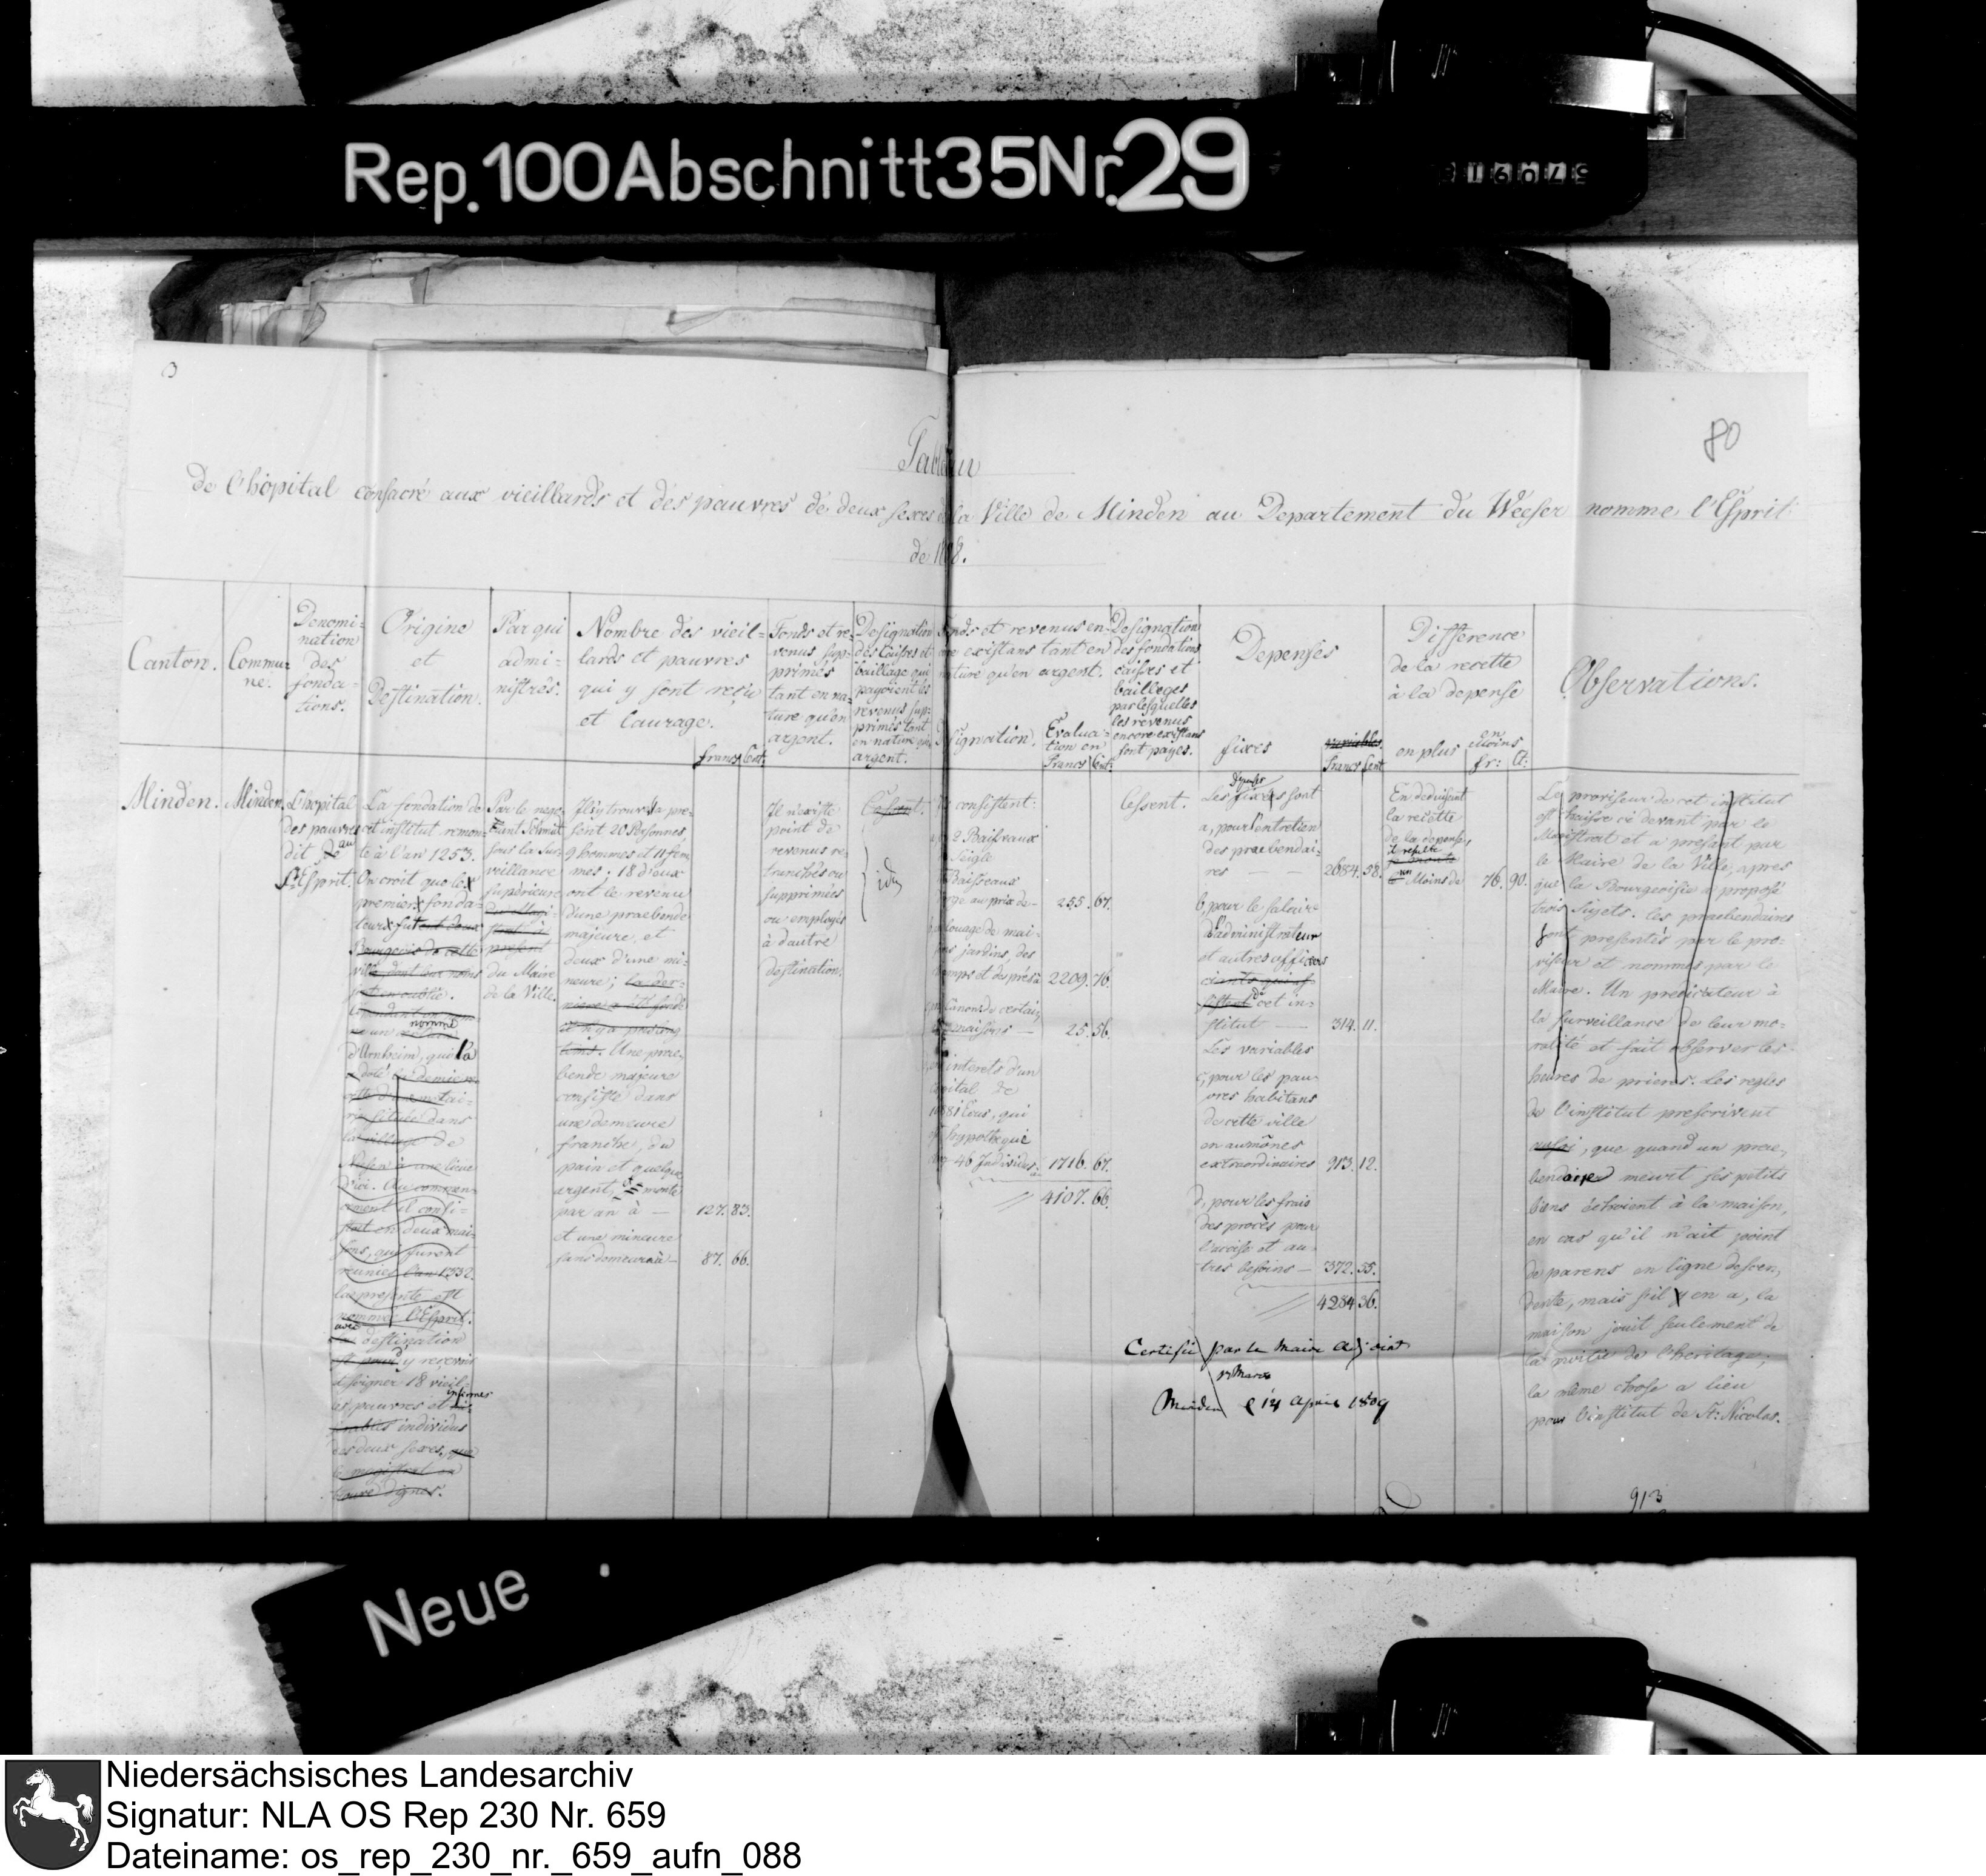 Rep. 100 Abschnitt 35 Nr. 29
80
Tableau
de l'hôpital consacré aux vieillards et des pauvres de deux sexes de la Ville de Minden au Departement du Wéeser nomme l'Esprit
de 1808.
Canton.
Commu-
ne.
Denomi-
nation
des
fonda-
tions.
Origine
et
Destination.
Par qui
admi-
nistrés.
Nombre des vieil-
lards et pauvres
qui y sont reçu
et l'aurage.
francs Cent.
Fonds et re-
venus sup-
primés
tant en na-
ture qu'en
argent.
Designation
des Caisses et
bailliage qui
payoient les
revenus sup-
primés tant
en nature qu'en
argent.
Fonds et revenus en-
core existans tant en
nature qu'en argent.
Designation.
Evalua-
tion en
francs Cent.
Designation
des fondations
caisses et
bailleges
par lesquelles
les revenus
encore existans
sont payés.
Depenses
fixes
variables
francs Cent
Difference
de la recette
à la depense
en plus
en
Moins
fr: Ct:
Observations.
Minden.
Minden.
L'hopital
des pauvres
dit au
St Esprit.
La fondation de
cet institut remon-
te à l'an 1253.
On croit que les
premiers fonda-
teurs fut deux
Bourgeois de cette
ville, dont les noms
sont en oublie.
un nommé
d'Arnheim, qui l'a
doté
située dans
le village de
à une lieue
d'ici. Au commen-
cement il consi-
stoit en deux mai-
sons, qui furent
reunies l'an 1332.
la presente est
nommée l'Esprit.
avec destination
d'y recevoir
et soigner 18 vieil-
les pauvres et infirmes
individus
des deux sexes, que
le magistrat en
trouve dignes.
Par le nego-
ciant Schmidt
sous la Sur-
veillance
supérieure
du Magi-
strat à
present
du Maire
de la Ville.
Il s'y trouve à pre-
sent 20 Personnes
9 hommes et 11 fem-
mes; 18 d'eux
ont le revenu
d'une praebende
majeure, et
deux d'une mi-
neure; la der-
niere a été fondé
il n'y a pas long
tems. Une prae-
bende majeure
consiste dans
une demeure
franche, du
pain et quelque
argent, et monte
par an à — 127. 83.
et une mineure
sans demeure à — 87. 66.
Il n'existe
point de
revenus re-
tranchés ou
supprimés
ou employés
à d'autre
destination.
Cessent.
idem
Ils consistent:
2 Boisseaux
Seigle
Boisseaux
orge au prix de — 255. 67.
louage de mai-
sons jardins, des
champs et des prés à 2209. 76.
Canons de certai-
nes maisons — 25. 56.
interets d'un
capital de
10881 écus, qui
hypotheque
46 Individus. 1716. 67.
4107. 66.
Cessent.
depenses
Les fixes sont
a, pour l'entretien
des praebendai-
res — — 2684. 58.
b, pour le salair
d'administrateur
et autres officiers
de cet in-
stitut — 314. 11.
Les variables
c, pour les pau-
vres habitans
de cette ville
en aumônes
extraordinaires 913. 12.
d, pour les frais
des procès pour
l'accise et au-
tres besoins — 372. 55.
4284. 36.
En deduisant
la recette
de la depense,
il resulte
un Moins de 76. 90.
Le proviseur de cet institut
est choisi ci devant par le
Magistrat et a présent par
le Maire de la Ville, apres
que la Bourgeoisie a proposé
trois Sujets. les praebendaires
sont presentés par le pro-
viseur et nommés par le
Maire. Un predicateur à
la surveillance de leur mo-
ralité et fait observer les
heures de prieres. Les regles
de l'institut prescrivent
aussi, que quand un prae-
bendaire meurt ses petits
biens échoient à la maison,
en cas qu'il n'ait point
de parens en ligne descen-
dente, mais s'il y en a, la
maison jouit seulement de
la moitié de l'heritage;
la même chose a lieu
pour l'institut de St: Nicolas.
Certifié par le Maire adjoint
Minden le 14 Avril 1809
913
Neue
Niedersächsisches Landesarchiv
Signatur: NLA OS Rep 230 Nr. 659
Dateiname: os_rep_230_nr._659_aufn_088